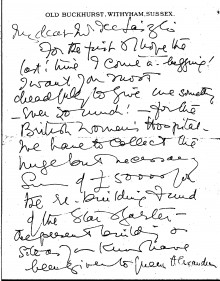 OLD BUCKHURST, WITHYHAM, SUSSEX.
My dear
For the first & I hope the
last! time I come a-begging!
I want you most
dreadfully to give me something
- ever so much! - for the
British Women's Hospital -
We have to collect the
huge but necessary
Sum of £50000 for
the re-building Fund
of the Star & Garter -
the present building &
site as you know have
been given to Queen Alexandra